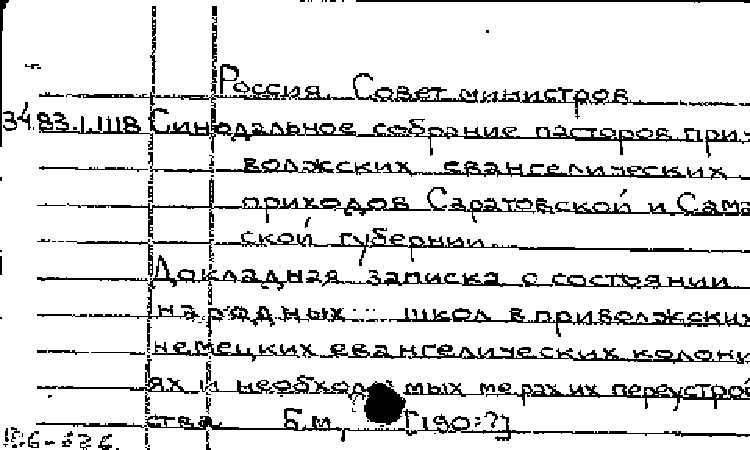 Россия. Совет министров
34.83.1.1118 Синодальное собрание пасторов при-
волжских евангелических
приходов Саратовской и Сама
ской губернии.
Докладная записка о состоянии
народных школ в приволжских
немецких евангелических колони
ях и необходимых мерах их переустрой
ства Б.м., [190-?]